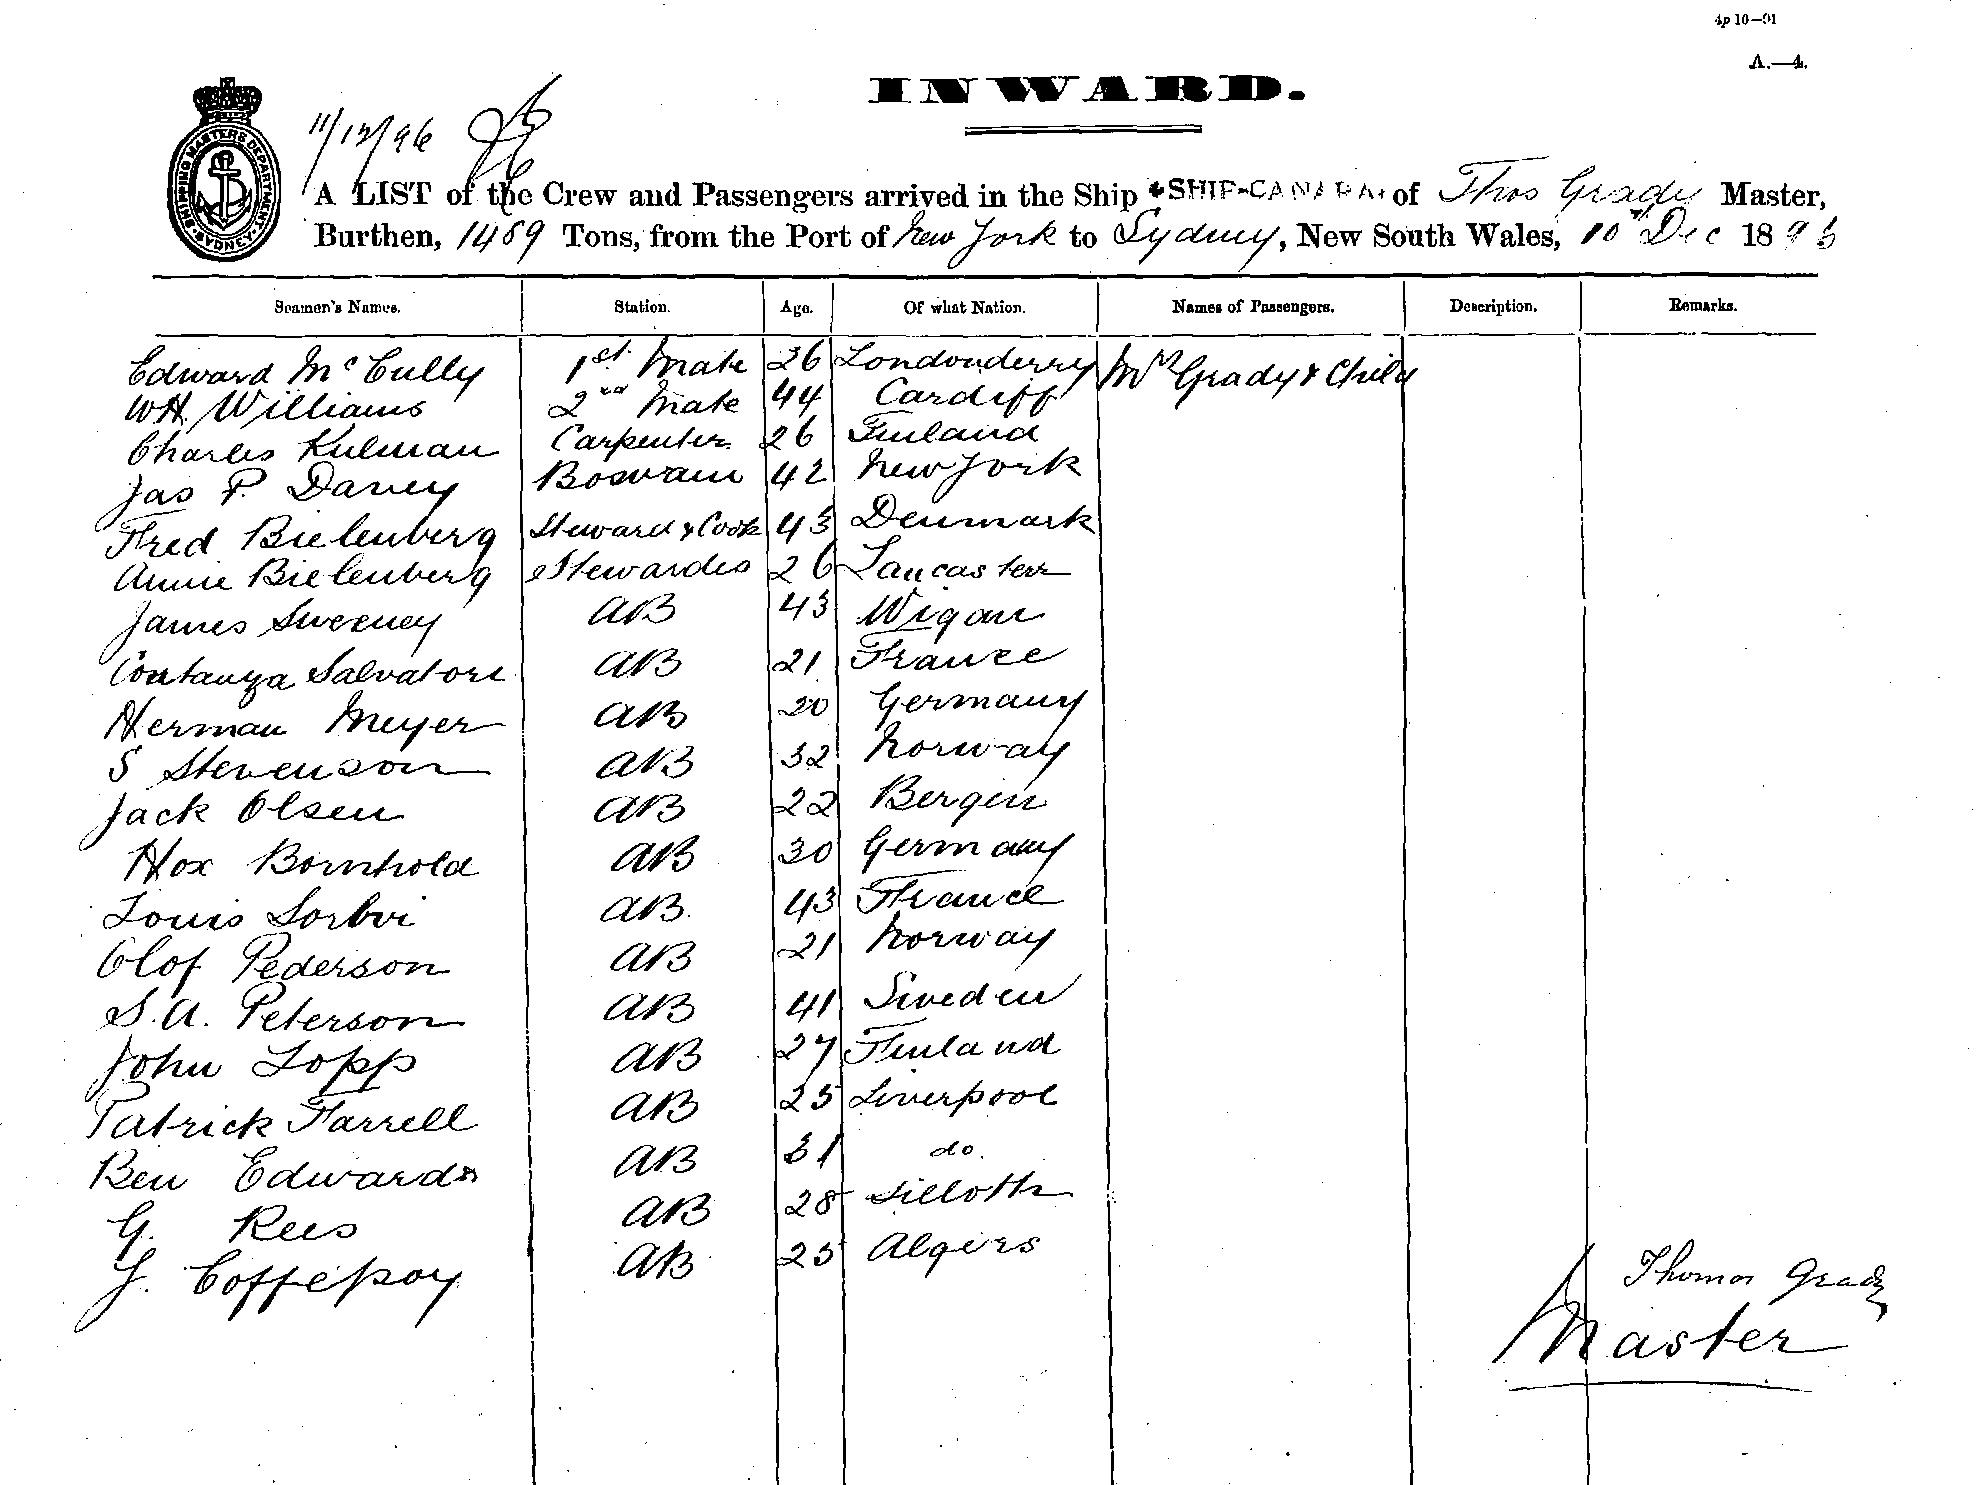 4p 10—91
A.—4.
INWARD.
SHIPPING MASTERS DEPARTMENT SYDNEY
11/12/96
A LIST of the Crew and Passengers arrived in the Ship SHIP-CANARA of Thos Grady Master,
Burthen, 1489 Tons, from the Port of New York to Sydney, New South Wales, 10th Dec 1896
Seamen's Names. Station. Age. Of what Nation. Names of Passengers. Description. Remarks.
Edward McCully 1st Mate 26 Londonderry Mrs Grady & Child
WH Williams 2nd Mate 44 Cardiff
Charles Kulman Carpenter 26 Finland
Jas P. Davey Boswain 42 New York
Fred Bielenberg Steward & Cook 43 Denmark
Annie Bielenberg Stewardes 26 Lancaster
James Sweeney AB 43 Wigan
Contanza Salvatore AB 21 France
Herman Meyer AB 20 Germany
S Stevenson AB 32 Norway
Jack Olsen AB 22 Bergen
Hox Bornhold AB 30 Germany
Louis Sorbvi AB 43 France
Olof Pederson AB 21 Norway
S. A. Peterson AB 41 Sweden
John Lopp AB 27 Finland
Patrick Farrell AB 25 Liverpool
Ben Edwards AB 31 do.
G. Rees AB 28 Silloth
J. Coffepoy AB 25 Algiers
Thomas Grady
Master